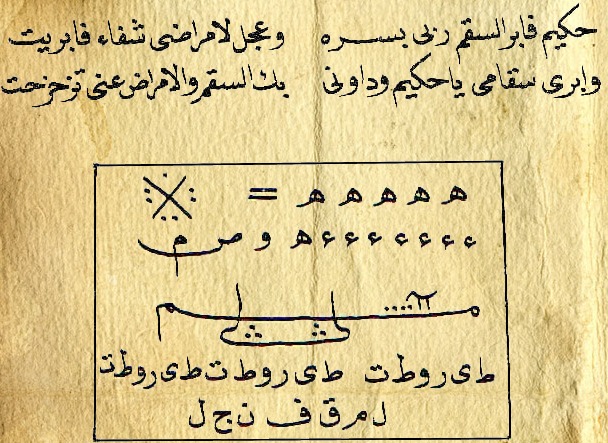 حكيم فابر السقم ربى بسره وعجل لامراضى شفاء فابريت
وابرى سقامى يا حكيم وداونى بك السقم والامراض عنى تزحزحت
ه ه ه ه ه =
ء ء ء ء ء ء ء ه و ص م
طى روطت طى روطت طى روطت
ل م ر ق ف ن ج ل